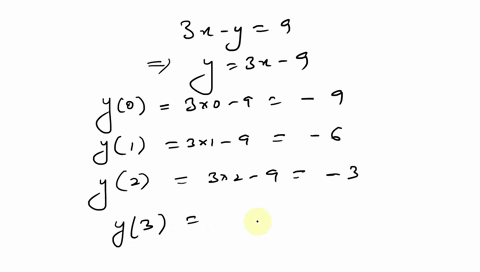 3x-y = 9
⇒ y = 3x - 9
y(0) = 3x0-9 = - 9
y(1) = 3x1-9 = - 6
y(2) = 3x2-9 = - 3
y(3) =